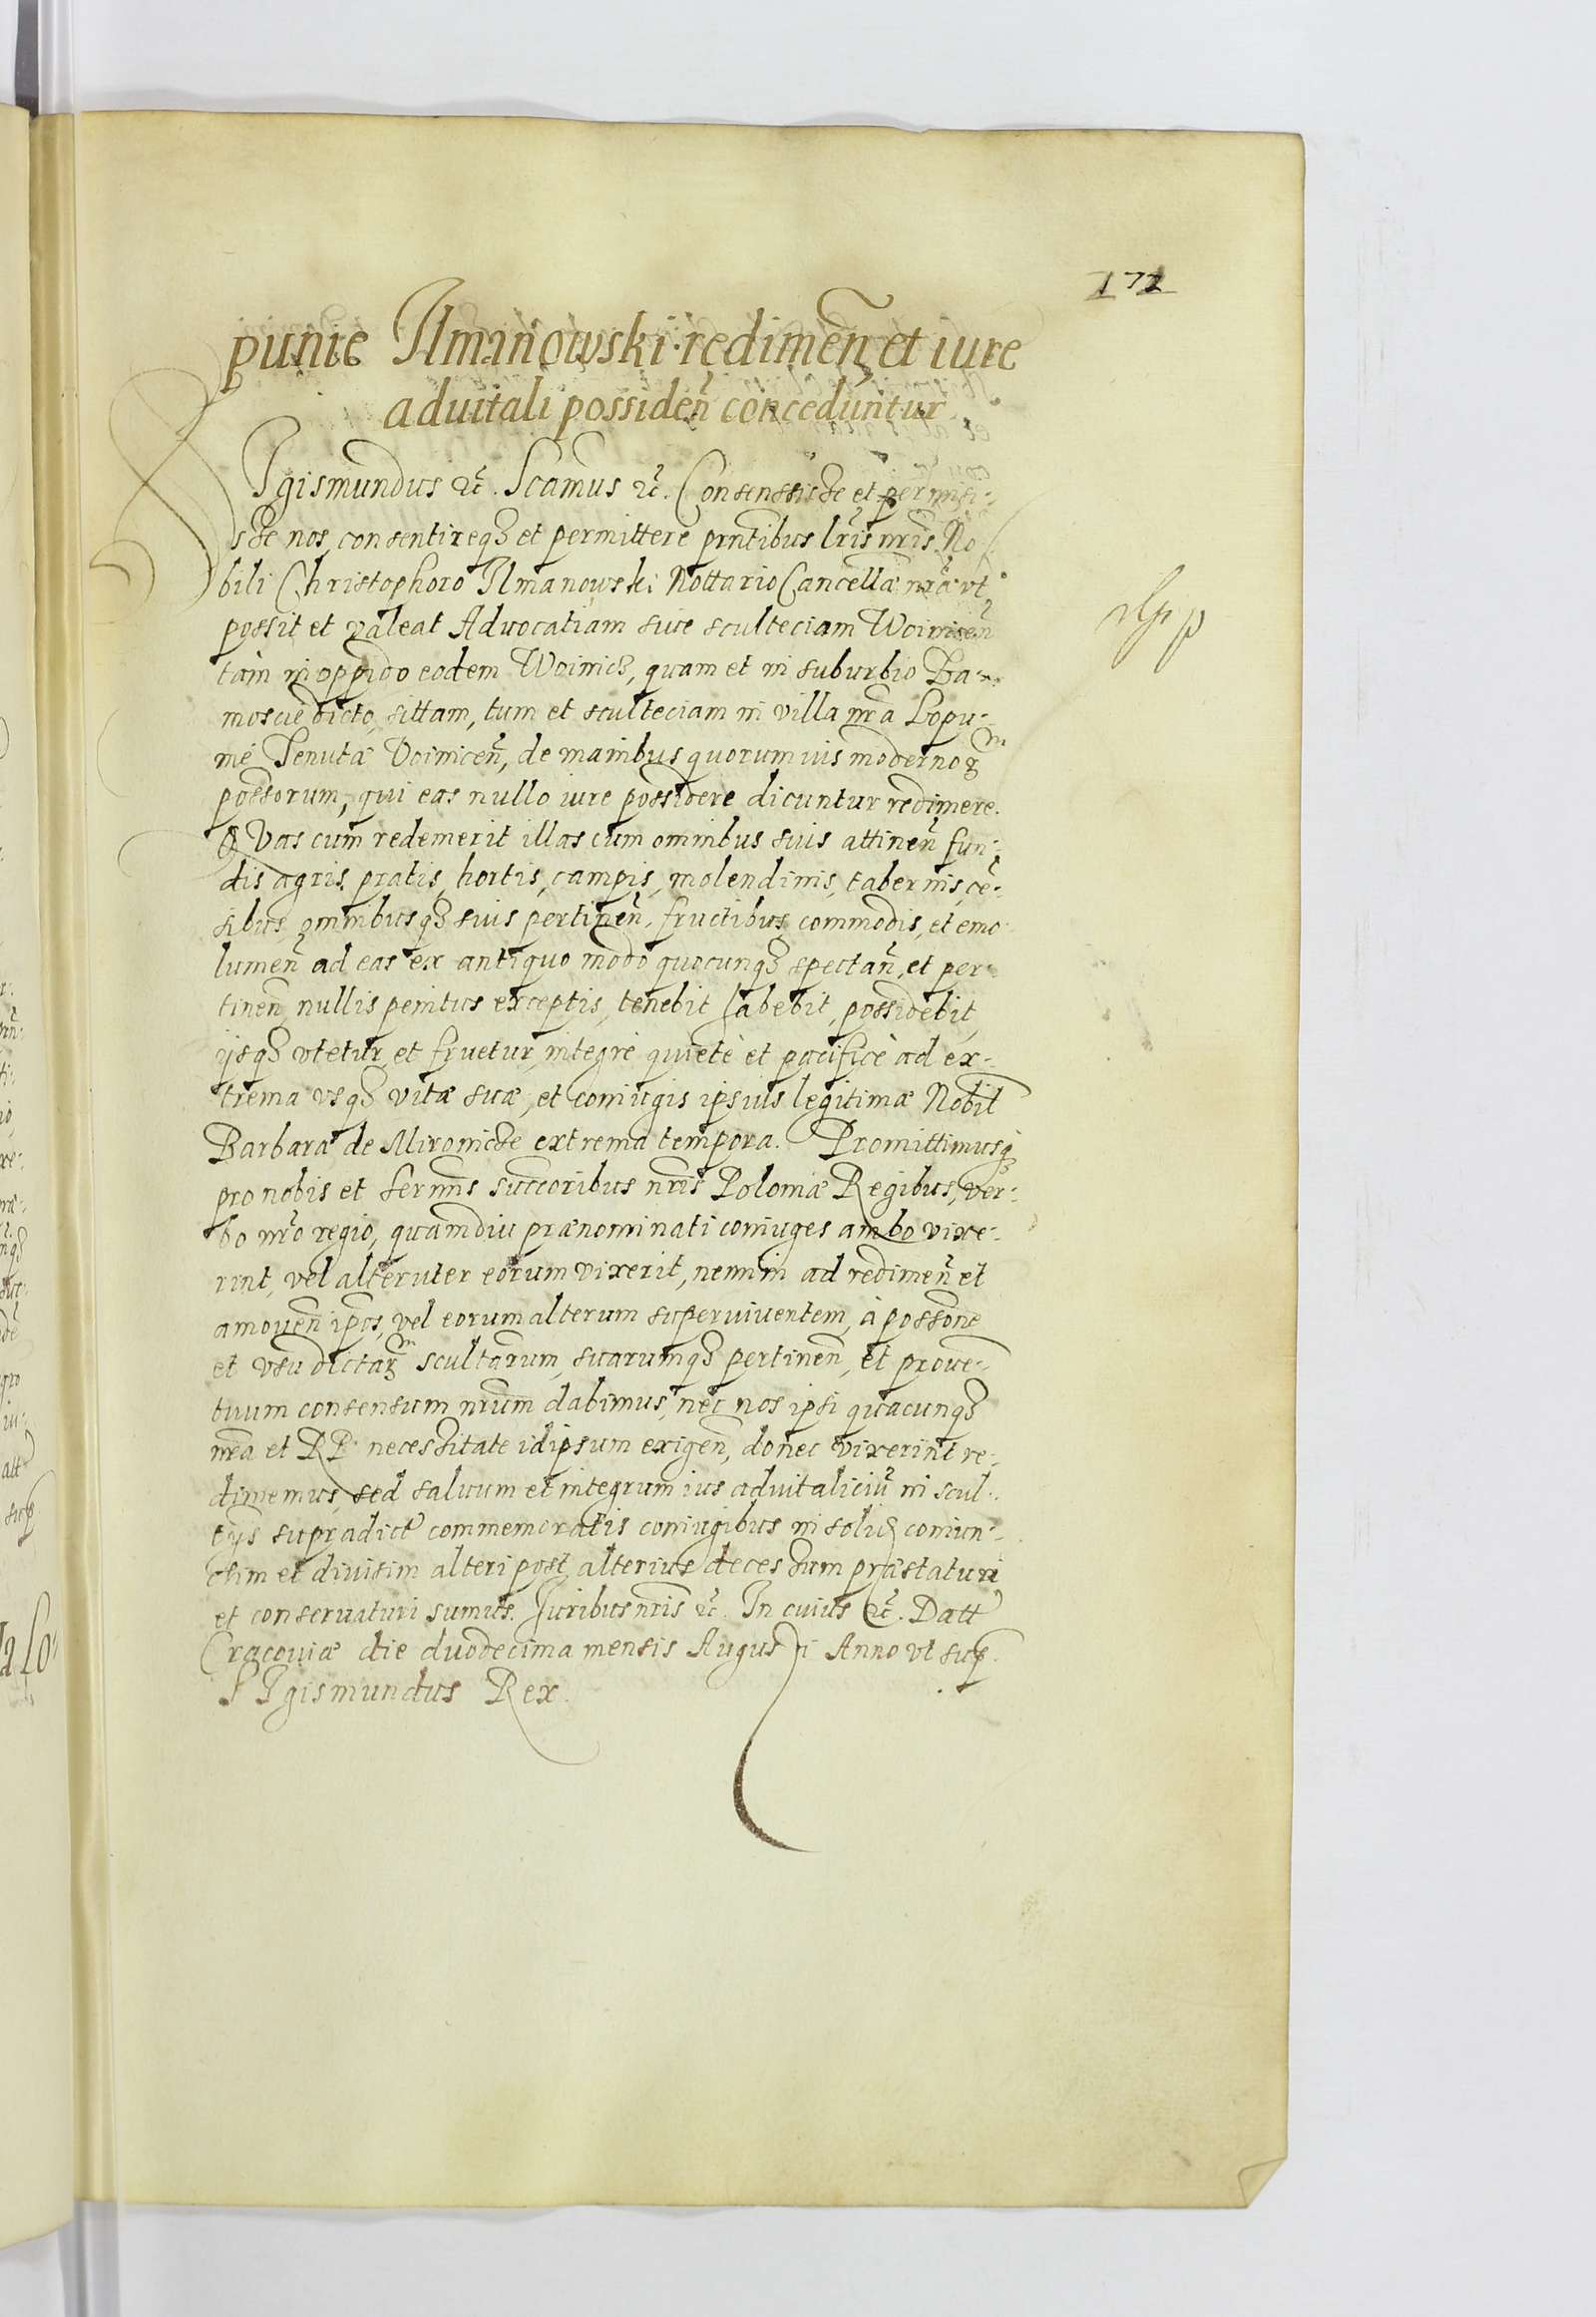 172
punie Ilmanowski redimen̄ et iure
aduitali possiden̄ conceduntur
SIgismundus etc̃. Scamus etc̃. Consensisse et permisi-
sse nos, consentireqȝ et permittere pn̄tibus lr̄is nr̄is No-
bili Christophoro Ilmanowski Nottario Cancellæ nr̄æ vt
possit et valeat Aduocatiam siue sculteciam Woinicen̄
tàm in oppido eodem Woinicȝ, quam et in suburbio Za-
moscie dicto, sittam, tum et sculteciam in villa nr̄a Łopu-
nie Tenutæ Voinicen̄, de manibus quorumuis modernoꝝ
possorum, qui eas nullo iure possidere dicuntur redimere.
QVas cum redemerit illas cum omnibus suis attinen̄ fun-
dis agris, pratis, hortis, campis, molendinis, tabernis, cē-
sibus, omnibusqȝ suis pertinen̄, fructibus, commodis, et emo-
lumen̄ ad eas ex antiquo modo quocunqȝ spectan̄, et per-
tinen̄, nullis penitus exceptis, tenebit habebit, possidebit,
ijsqȝ vtetur, et fruetur, integrè quietè et pacificè ad ex-
trema vsqȝ vitæ suæ, et coniugis ipsius legitimæ Nobil̄
Barbaræ de Mironicze extrema tempora. Promittimusqȝ
pro nobis et Sermīs succoribus nr̄is Poloniæ Regibus, ver-
bo nr̄o regio, quamdiu prænominati coniuges ambo vixe-
rint, vel alteruter eorum vixerit, nemini ad redimen̄ et
amouen̄ ip̄os, vel eorum alterum superviuentem, à possone
et vsu dictaꝝ scultarum, suarumqȝ pertinen̄, et prouen̄-
tuum consensum nr̄um dabimus, nec nos ipsi quacunqȝ
nr̄a et RP. necessitate idipsum exigen̄, donec vixerint re-
dimemus, sed saluum et integrum ius aduitaliciū in scul-
tijs supradict̄ commemoratis coniugibus in solid̄ coniun-
ctim et diuisim alteri post alterius decessum præstaturi
et conseruaturi sumus. Iuribus nr̄is etc̃. In cuius etc̃. Datt̄
Cracouiæ die duodecima mensis Augusti Anno vt sup̄.
SIgismundus Rex.